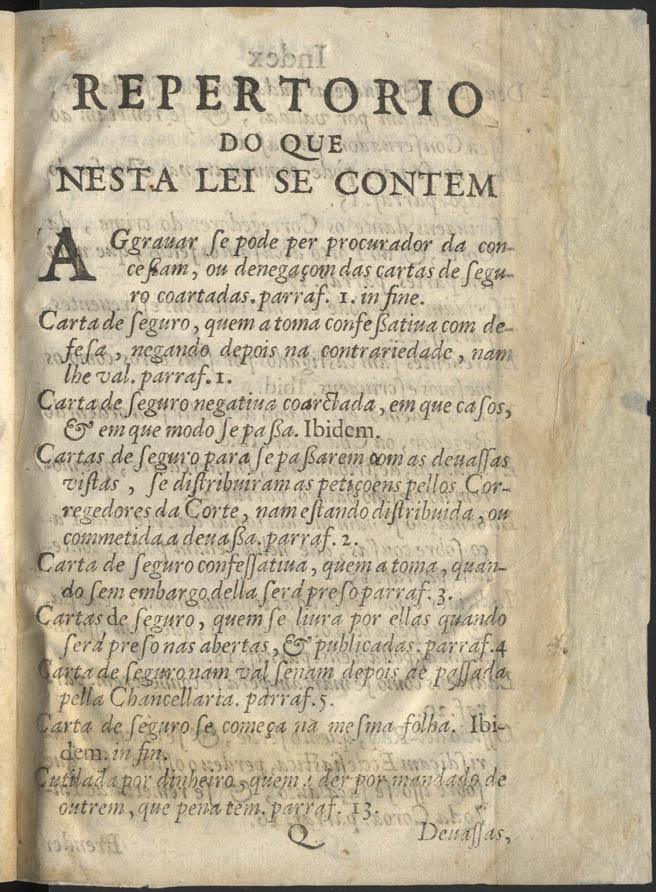 REPERTORIO
DO QUE
NESTA LEI SE CONTEM
AGgrauar ſe pode per procurador da con-
ceſſam, ou denegaçom das cartas de ſegu-
ro coartadas. parraf. 1. in fine.
Carta de ſeguro, quem a toma confeßatiua com de-
feſa, negando depois na contrariedade, nam
lhe val. parraf. 1.
Carta de ſeguro negatiua coarctada, em que caſos,
& em que modo ſe paßa. Ibidem.
Cartas de ſeguro para ſe paßarem com as deuaſſas
viſtas, ſe diſtribuiram as petiçoens pellos Cor-
regedores da Corte, nam eſtando diſtribuida, ou
commetida a deuaßa. parraf. 2.
Carta de ſeguro confeſſatiua, quem a toma, quan-
do ſem embargo della ſerá preſo parraf. 3.
Cartas de ſeguro, quem ſe liura por ellas quando
ſerá preſo nas abertas, & publicadas. parraf. 4
Carta de ſeguro nam val ſenam depois de paſſada
pella Chancellaria. parraf. 5.
Carta de ſeguro ſe começa na meſma folha. Ibi-
dem. in fin.
Cutilada por dinheiro, quem der por mandado de
outrem, que pena tem. parraf. 13.
Q Deuaſſas,